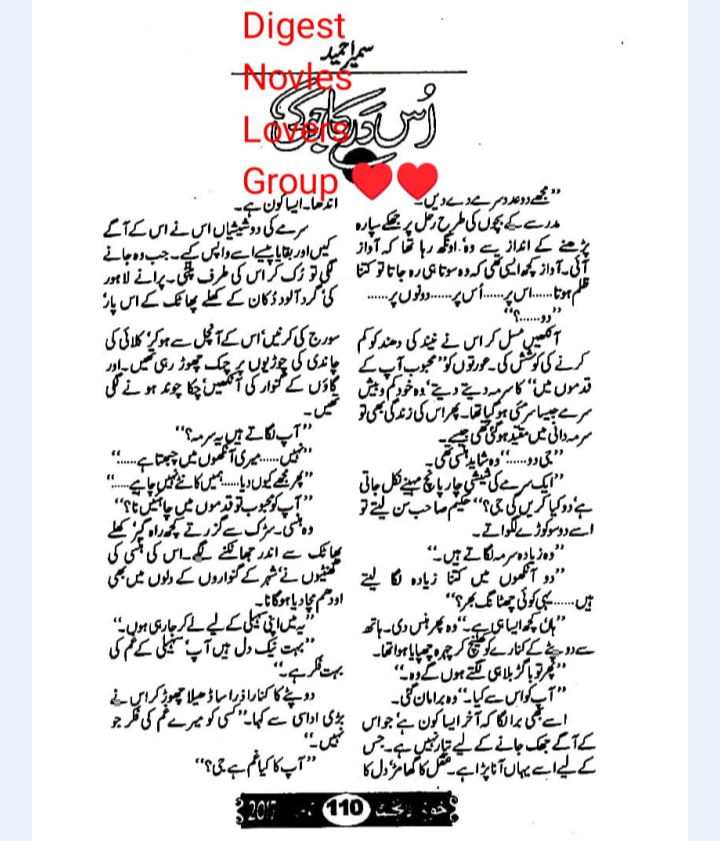 Digest
Novles
Lovers
Group
سمیرا حمید
اُس در کا جوگی
”مجھے دو عدد سرمے دے دیں۔“
مدرسے کے بچوں کی طرح رحل پر جھکے سپارہ
پڑھنے کے انداز سے وہ اونگھ رہا تھا کہ آواز
آئی۔ آواز کچھ ایسی تھی کہ وہ سوتا ہی رہ جاتا تو کتنا
ظلم ہوتا...... اس پر...... اُس پر...... دونوں پر......
”دو......؟“
آنکھیں مسل کر اس نے نیند کی دھند کو کم
کرنے کی کوشش کی۔ عورتوں کو ”محبوب آپ کے
قدموں میں“ کا سرمہ دیتے دیتے وہ خود کم و بیش
سرمے جیسا سرمئی ہو گیا تھا۔ پھر اس کی زندگی بھی تو
سرمہ دانی میں مقید ہو گئی تھی جیسے۔
”جی دو......“ وہ شاید ہنسی تھی۔
”ایک سرمے کی شیشی چار پانچ مہینے نکل جاتی
ہے دو کیا کریں گی جی؟“ حکیم صاحب سن لیتے تو
اسے دو سو کوڑے لگواتے۔
”وہ زیادہ سرمہ لگاتے ہیں۔“
”دو آنکھوں میں کتنا زیادہ لگا لیتے
ہیں...... یہی کوئی چھٹانگ بھر؟“
”ہاں کچھ ایسا ہی ہے۔“ وہ پھر ہنس دی۔ ہاتھ
سے دوپٹے کے کنارے کو کھینچ کر چہرہ چھپایا ہوا تھا۔
”پھر تو باگڑ بلا ہی لگتے ہوں گے وہ۔“
”آپ کو اس سے کیا۔“ وہ برا مان گئی۔
اسے بھی برا لگا کہ آخر ایسا کون ہے جو اس
کے آگے جھک جانے کے لیے تیار نہیں ہے۔ جس
کے لیے اسے یہاں آنا پڑا ہے۔ عقل کا گھامڑ دل کا
اندھا۔ ایسا کون ہے۔
سرمے کی دو شیشیاں اس نے اس کے آگے
کیں اور بقایا پیسے اسے واپس کیے۔ جب وہ جانے
لگی تو رُک کر اس کی طرف پلٹی۔ پرانے لاہور
کی گرد آلود دُکان کے کھلے پھاٹک کے اس پار
سورج کی کرنیں اس کے آنچل سے ہو کر کلائی کی
چاندی کی چوڑیوں پر چمک چھوڑ رہی تھیں۔ اور
گاؤں کے گنوار کی آنکھیں چکا چوند ہونے لگی
تھیں۔
”آپ لگاتے ہیں یہ سرمہ؟“
”نہیں...... میری آنکھوں میں چبھتا ہے......“
”پھر مجھے کیوں دیا...... ہمیں کانٹے نہیں چاہیے......“
”آپ کو محبوب تو قدموں میں چاہئیں نا؟“
وہ ہنسی۔ سڑک سے گزرتے کچھ راہ گیر کھلے
پھاٹک سے اندر جھانکنے لگے۔ اس کی ہنسی کی
گھنٹیوں نے شہر کے گنواروں کے دلوں میں بھی
اودھم مچا دیا ہو گا نا۔
”یہ میں اپنی سہیلی کے لیے لے کر جا رہی ہوں۔“
”بہت نیک دل ہیں آپ سہیلی کے غم کی
بہت فکر ہے۔“
دوپٹے کا کنارا ذرا سا ڈھیلا چھوڑ کر اس نے
بڑی اداسی سے کہا۔ ”کسی کو میرے غم کی فکر جو
نہیں۔“
”آپ کا کیا غم ہے جی؟“
110 2017